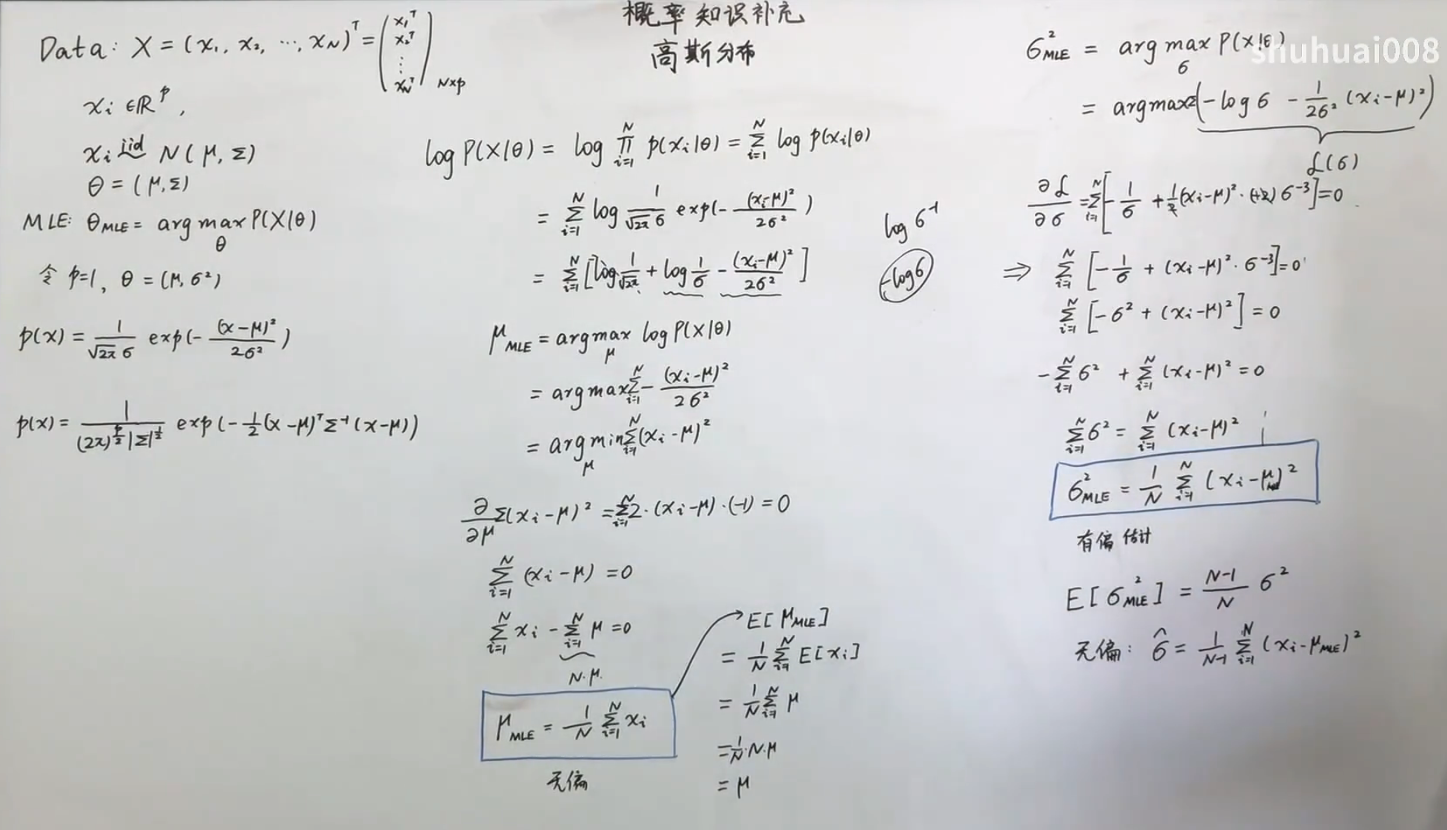 概率知识补充
高斯分布
shuhuai008
Data: X = (x₁, x₂, ⋯, x_N)^T = (x₁^T x₂^T ⋮ x_N^T)_{N×p}
x_i ∈ ℝ^p,
x_i iid~ N(μ, Σ)
θ = (μ, Σ)
MLE: θ_MLE = arg max_θ P(X|θ)
令 p=1, θ = (μ, σ²)
p(x) = 1/(√2π σ) exp(-(x-μ)²/2σ²)
p(x) = 1/((2π)^{p/2} |Σ|^{1/2}) exp(-1/2 (x-μ)^T Σ^{-1} (x-μ))
log P(X|θ) = log ∏_{i=1}^N p(x_i|θ) = ∑_{i=1}^N log p(x_i|θ)
= ∑_{i=1}^N log 1/(√2π σ) exp(-(x_i-μ)²/2σ²)
= ∑_{i=1}^N [log 1/√2π + log 1/σ - (x_i-μ)²/2σ²]
log σ^{-1}
-log σ
μ_MLE = argmax_μ log P(X|θ)
= argmax ∑_{i=1}^N - (x_i-μ)²/2σ²
= argmin_μ ∑_{i=1}^N (x_i-μ)²
∂/∂μ ∑(x_i-μ)² = ∑_{i=1}^N 2·(x_i-μ)·(-1) = 0
∑_{i=1}^N (x_i-μ) = 0
∑_{i=1}^N x_i - ∑_{i=1}^N μ = 0
N·μ
μ_MLE = 1/N ∑_{i=1}^N x_i
无偏
E[μ_MLE]
= 1/N ∑_{i=1}^N E[x_i]
= 1/N ∑_{i=1}^N μ
= 1/N·N·μ
= μ
σ²_MLE = arg max_σ P(X|θ)
= argmax ∑(-log σ - 1/2σ² (x_i-μ)²)
ℒ(σ)
∂ℒ/∂σ = ∑_{i=1}^N [-1/σ + 1/2 (x_i-μ)²·(+2) σ^{-3}] = 0
⇒ ∑_{i=1}^N [-1/σ + (x_i-μ)²·σ^{-3}] = 0
∑_{i=1}^N [-σ² + (x_i-μ)²] = 0
-∑_{i=1}^N σ² + ∑_{i=1}^N (x_i-μ)² = 0
∑_{i=1}^N σ² = ∑_{i=1}^N (x_i-μ)²
σ²_MLE = 1/N ∑_{i=1}^N (x_i-μ)²
有偏估计
E[σ²_MLE] = (N-1)/N σ²
无偏: σ̂ = 1/(N-1) ∑_{i=1}^N (x_i-μ_MLE)²